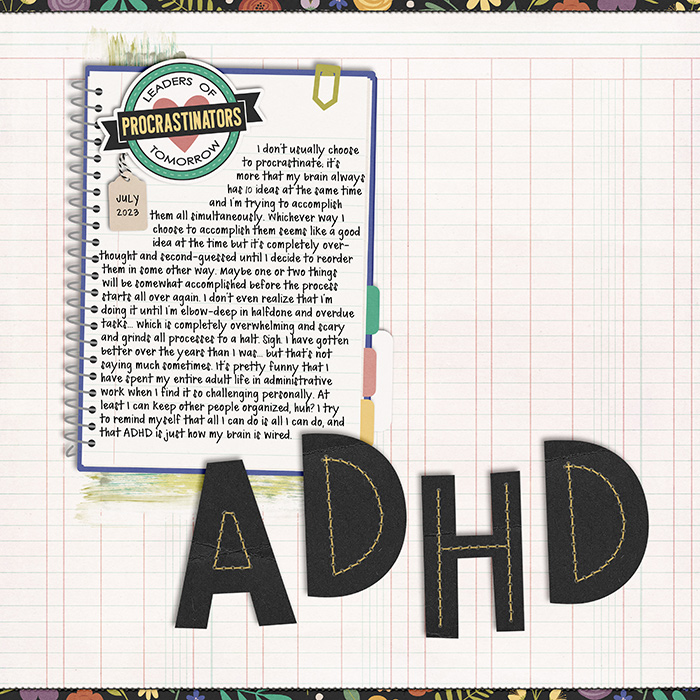 LEADERS OF
PROCRASTINATORS
TOMORROW
JULY
2023
I don't usually choose
to procrastinate; it's
more that my brain always
has 10 ideas at the same time
and I'm trying to accomplish
them all simultaneously. Whichever way I
choose to accomplish them seems like a good
idea at the time but it's completely over-
thought and second-guessed until I decide to reorder
them in some other way. Maybe one or two things
will be somewhat accomplished before the process
starts all over again. I don't even realize that I'm
doing it until I'm elbow-deep in halfdone and overdue
tasks... which is completely overwhelming and scary
and grinds all processes to a halt. Sigh. I have gotten
better over the years than I was... but that's not
saying much sometimes. It's pretty funny that I
have spent my entire adult life in administrative
work when I find it so challenging personally. At
least I can keep other people organized, huh? I try
to remind myself that all I can do is all I can do, and
that ADHD is just how my brain is wired.
ADHD